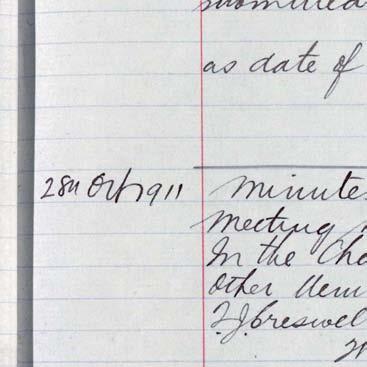 submitted
as date of
28th Oct 1911 Minutes
Meeting
In the Cha
Other Mem
F.J. Creswel